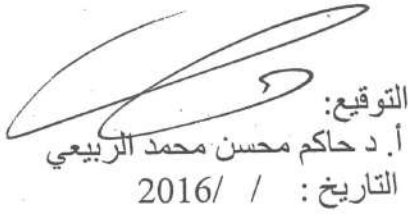 التوقيع:
أ. د حاكم محسن محمد الربيعي
التاريخ : / /2016